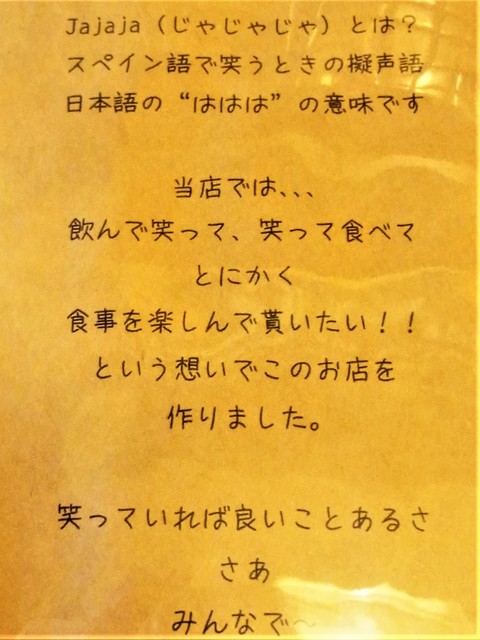 Jajaja（じゃじゃじゃ）とは？
スペイン語で笑うときの擬声語
日本語の“ははは”の意味です
当店では、、、
飲んで笑って、笑って食べて
とにかく
食事を楽しんで貰いたい！！
という想いでこのお店を
作りました。
笑っていれば良いことあるさ
さあ
みんなで〜